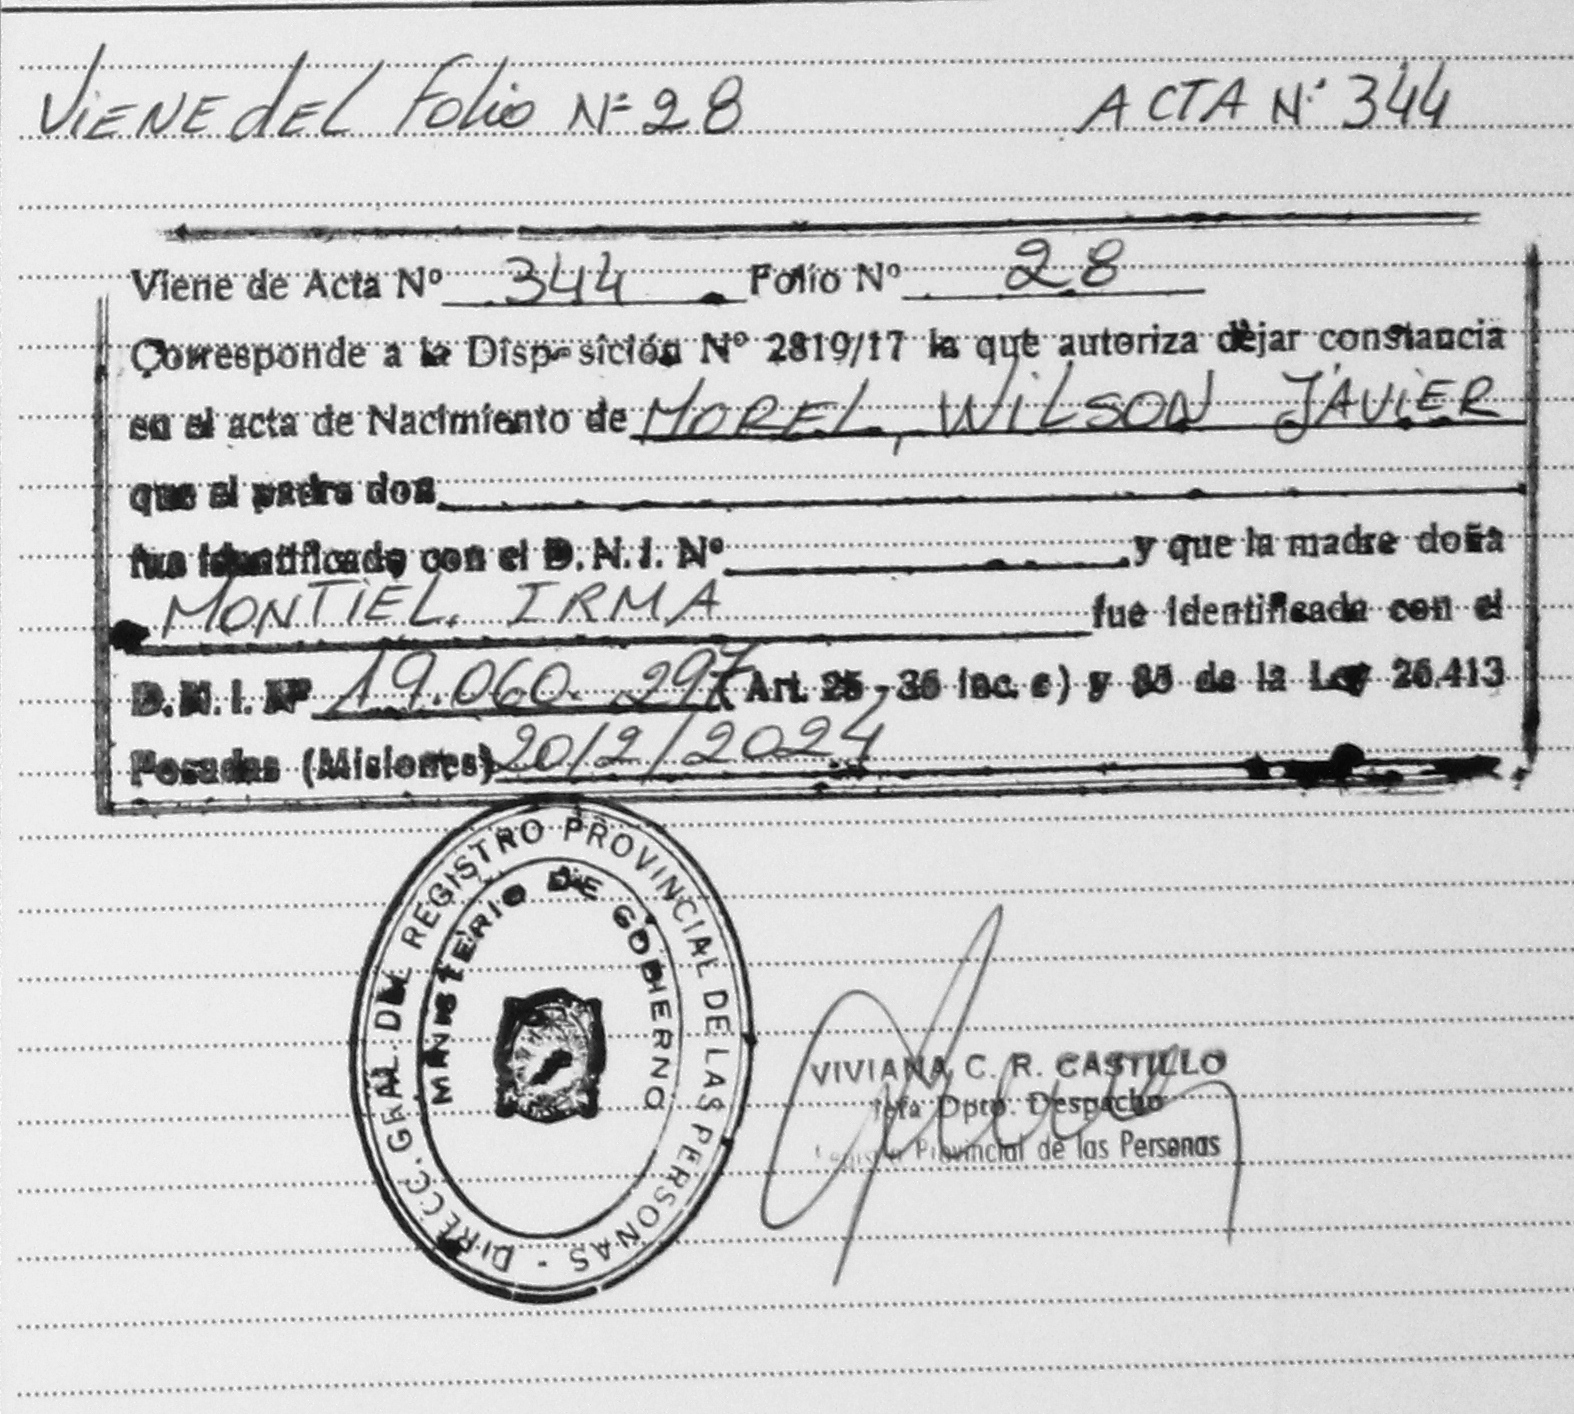 ViENE dEL Folio Nº 28 ACTA Nº 344
Viene de Acta Nº 344 Folio Nº 28
Corresponde a la Disposición Nº 2819/17 la que autoriza dejar constancia
en el acta de Nacimiento de MOREL, WiLSON JAViER
que el padre don
fue identificado con el D.N.I. Nº y que la madre doña
MONTiEL. IRMA fue identificada con el
D.N.I. Nº 19.060.297 (Art. 25 - 36 inc. c) y 85 de la Ley 26.413
Posadas (Misiones) 20/2/2024
DIRECC. GRAL. DEL REGISTRO PROVINCIAL DE LAS PERSONAS -
MINISTERIO DE GOBIERNO
VIVIANA C. R. CASTILLO
Jefa Dpto. Despacho
Registro Provincial de las Personas